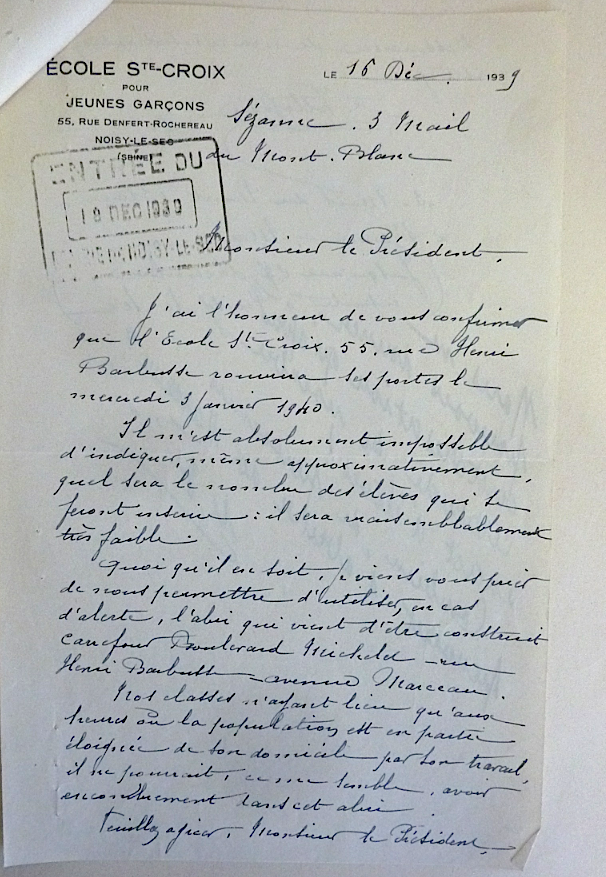 ÉCOLE STE-CROIX
POUR
JEUNES GARÇONS
55, RUE DENFERT-ROCHEREAU
NOISY-LE-SEC
(SEINE)
LE 16 Déc. 1939
Sézanne. 3 Mail
du Mont-Blanc
ENTRÉE DU
18 DEC 1939
MAIRIE DE NOISY-LE-SEC
Monsieur le Président,
J'ai l'honneur de vous confirmer
que l'École St-Croix. 55, rue Henri
Barbusse rouvrira ses portes le
mercredi 3 Janvier 1940.
Il m'est absolument impossible
d'indiquer, même approximativement,
quel sera le nombre des élèves qui se
feront inscrire : il sera vraisemblablement
très faible.
Quoi qu'il en soit, je viens vous prier
de nous permettre d'utiliser, en cas
d'alerte, l'abri qui vient d'être construit
carrefour Boulevard Michelet - rue
Henri Barbusse - avenue Marceau.
Nos classes n'ayant lieu qu'aux
heures où la population est en partie
éloignée de son domicile par son travail,
il ne pourrait, ce me semble, avoir
encombrement dans cet abri.
Veuillez agréer, Monsieur le Président,